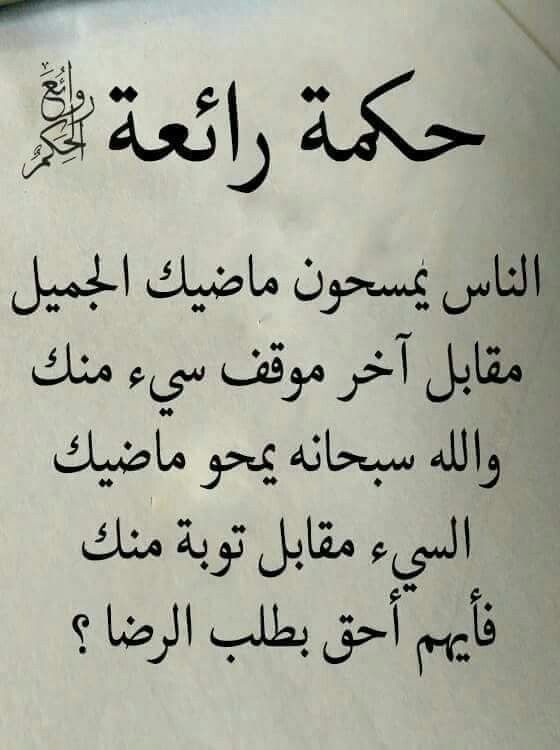 حكمة رائعة
روائع
الحكم
الناس يمسحون ماضيك الجميل
مقابل آخر موقف سيء منك
والله سبحانه يمحو ماضيك
السيء مقابل توبة منك
فأيهم أحق بطلب الرضا ؟